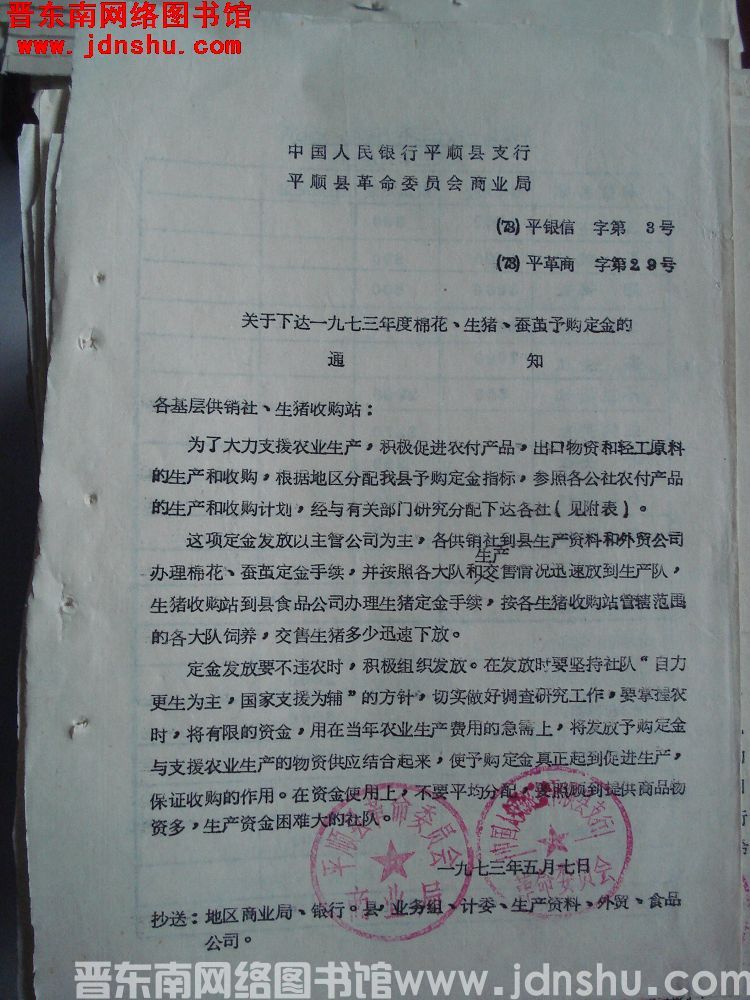 晋东南网络图书馆
www.jdnshu.com
中国人民银行平顺县支行
平顺县革命委员会商业局
(73)平银信 字第 3号
(73)平革商 字第29号
关于下达一九七三年度棉花、生猪、蚕茧予购定金的
通 知
各基层供销社、生猪收购站：
为了大力支援农业生产，积极促进农付产品，出口物资和轻工原料
的生产和收购，根据地区分配我县予购定金指标，参照各公社农付产品
的生产和收购计划，经与有关部门研究分配下达各社(见附表)。
这项定金发放以主管公司为主，各供销社到县生产资料和外贸公司
生产
办理棉花、蚕茧定金手续，并按照各大队和交售情况迅速放到生产队，
生猪收购站到县食品公司办理生猪定金手续，按各生猪收购站管辖范围
的各大队饲养，交售生猪多少迅速下放。
定金发放要不违农时，积极组织发放。在发放时要坚持社队“自力
更生为主，国家支援为辅”的方针，切实做好调查研究工作，要掌握农
时，将有限的资金，用在当年农业生产费用的急需上，将发放予购定金
与支援农业生产的物资供应结合起来，使予购定金真正起到促进生产，
保证收购的作用。在资金使用上，不要平均分配，要照顾到提供商品物
资多，生产资金困难大的社队。
平顺县革命委员会
商业局
中国人民银行平顺县支行
革命委员会
一九七三年五月七日
抄送：地区商业局、银行。县·业务组、计委、生产资料、外贸、食品
公司。
晋东南网络图书馆www.jdnshu.com